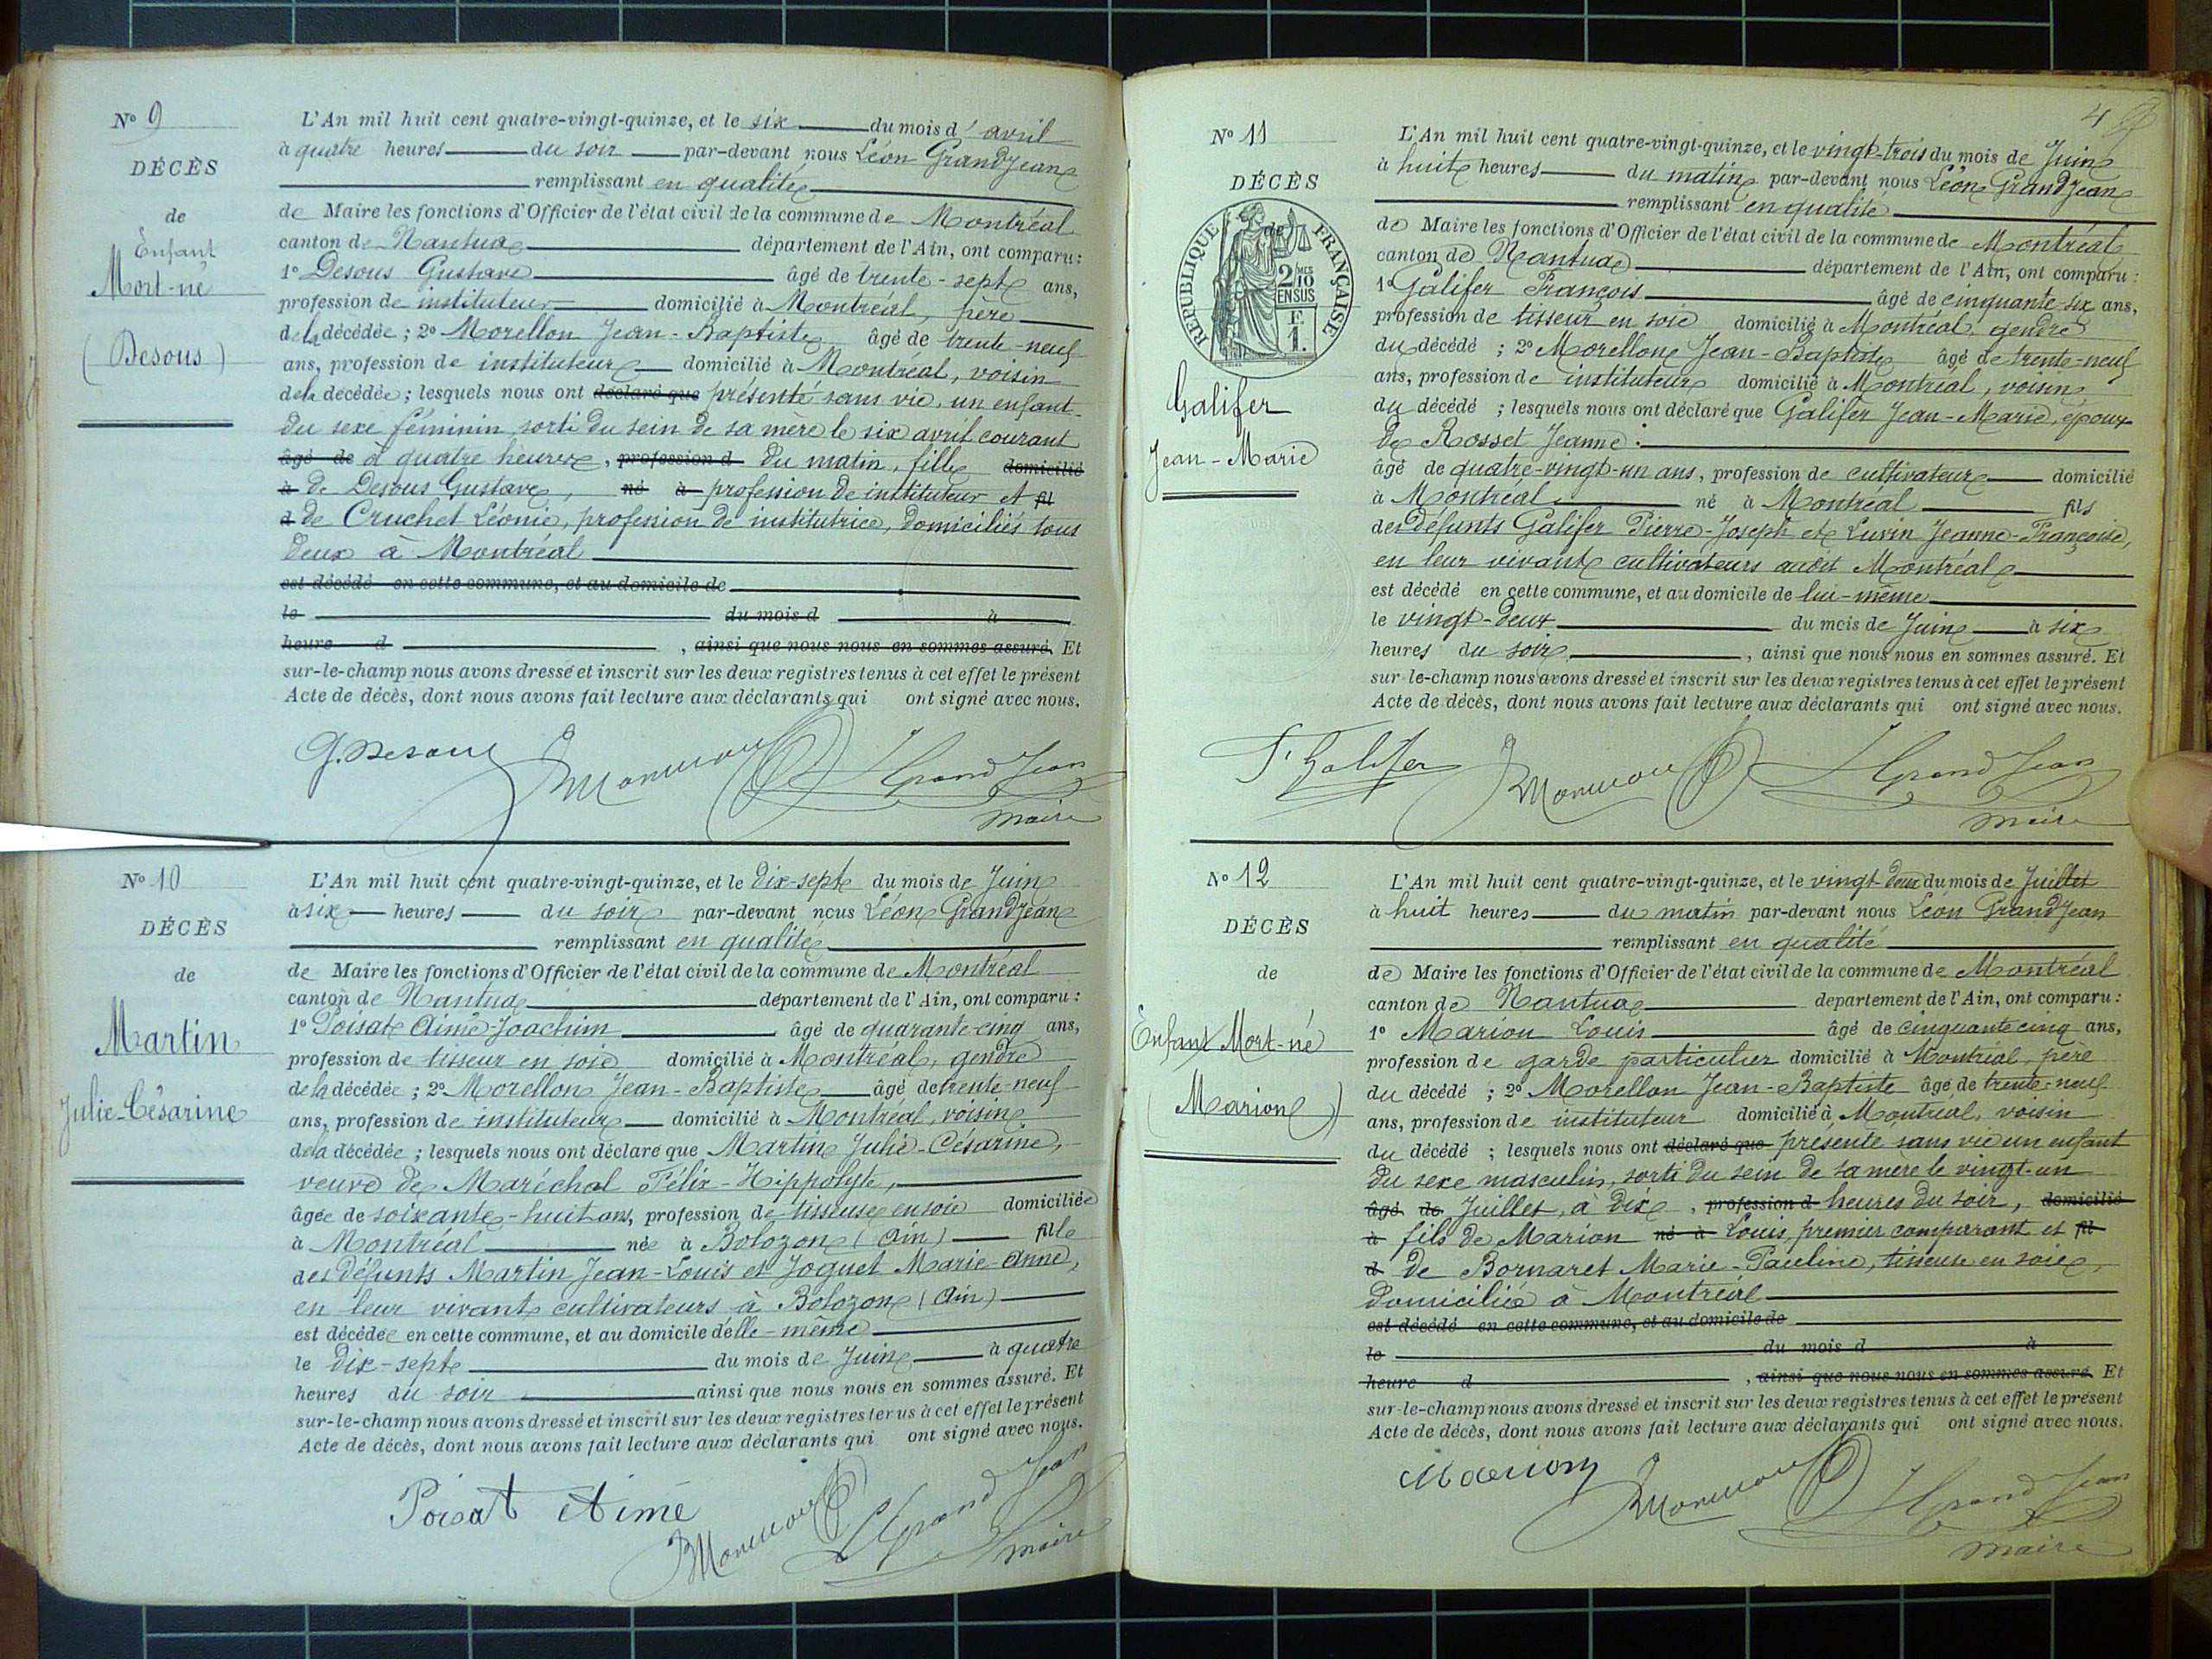 Nº 9
DÉCÈS
de
Enfant
Mort-né
(Desous)
L'An mil huit cent quatre-vingt-quinze, et le six du mois d'avril
à quatre heures du soir par-devant nous Léon Grandjean
remplissant en qualité
de Maire les fonctions d'Officier de l'état civil de la commune de Montréal
canton de Nantua département de l'Ain, ont comparu :
1º Desous Gustave âgé de trente-sept ans,
profession de instituteur domicilié à Montréal, père
de la décédée ; 2º Morellon Jean-Baptiste âgé de trente-neuf
ans, profession de instituteur domicilié à Montréal, voisin
de la décédée ; lesquels nous ont déclaré que présenté sans vie, un enfant
du sexe féminin sorti du sein de sa mère le six avril courant
âgé de à quatre heures, profession d du matin, fille domicilié
à de Desous Gustave, né à profession de instituteur et fil
d de Cruchet Léonie, profession de institutrice, domiciliés tous
deux à Montréal
est décédé en cette commune, et au domicile de
le du mois d à
heure d , ainsi que nous nous en sommes assuré. Et
sur-le-champ nous avons dressé et inscrit sur les deux registres tenus à cet effet le présent
Acte de décès, dont nous avons fait lecture aux déclarants qui ont signé avec nous.
G. Desous
L Grand Jean
maire
Nº 10
DÉCÈS
de
Martin
Julie-Césarine
L'An mil huit cent quatre-vingt-quinze, et le dix-sept du mois de Juin
à six heures du soir par-devant nous Léon Grandjean
remplissant en qualité
de Maire les fonctions d'Officier de l'état civil de la commune de Montréal
canton de Nantua département de l'Ain, ont comparu :
1º Poisat Aimé-Joachim âgé de quarante-cinq ans,
profession de tisseur en soie domicilié à Montréal, gendre
de la décédée ; 2º Morellon Jean-Baptiste âgé de trente-neuf
ans, profession de instituteur domicilié à Montréal, voisin
de la décédée ; lesquels nous ont déclaré que Martin Julie-Césarine,
veuve de Maréchal Félix-Hippolyte,
âgée de soixante-huit ans, profession de tisseuse en soie domiciliée
à Montréal née à Bolozon (Ain) fille
des défunts Martin Jean-Louis et Joguet Marie-Anne,
en leur vivant cultivateurs à Bolozon (Ain)
est décédée en cette commune, et au domicile d'elle-même
le dix-sept du mois de Juin à quatre
heures du soir ainsi que nous nous en sommes assuré. Et
sur-le-champ nous avons dressé et inscrit sur les deux registres tenus à cet effet le présent
Acte de décès, dont nous avons fait lecture aux déclarants qui ont signé avec nous.
Poisat Aimé
L Grand Jean
maire
4
Nº 11
DÉCÈS
de
REPUBLIQUE FRANÇAISE
2 MES
10
EN SUS
F.
1.
Galifer
Jean-Marie
L'An mil huit cent quatre-vingt-quinze, et le vingt-trois du mois de Juin
à huit heures du matin par-devant nous Léon Grandjean
remplissant en qualité
de Maire les fonctions d'Officier de l'état civil de la commune de Montréal
canton de Nantua département de l'Ain, ont comparu :
1º Galifer François âgé de cinquante-six ans,
profession de tisseur en soie domicilié à Montréal, gendre
du décédé ; 2º Morellon Jean-Baptiste âgé de trente-neuf
ans, profession de instituteur domicilié à Montréal, voisin
du décédé ; lesquels nous ont déclaré que Galifer Jean-Marie, époux
de Rosset Jeanne
âgé de quatre-vingt-un ans, profession de cultivateur domicilié
à Montréal né à Montréal fils
des défunts Galifer Pierre-Joseph et Luvin Jeanne-Françoise,
en leur vivant cultivateurs audit Montréal
est décédé en cette commune, et au domicile de lui-même
le vingt-deux du mois de Juin à six
heures du soir , ainsi que nous nous en sommes assuré. Et
sur-le-champ nous avons dressé et inscrit sur les deux registres tenus à cet effet le présent
Acte de décès, dont nous avons fait lecture aux déclarants qui ont signé avec nous.
F. Galifer
L Grand Jean
maire
Nº 12
DÉCÈS
de
Enfant Mort-né
(Marion)
L'An mil huit cent quatre-vingt-quinze, et le vingt-deux du mois de Juillet
à huit heures du matin par-devant nous Léon Grandjean
remplissant en qualité
de Maire les fonctions d'Officier de l'état civil de la commune de Montréal
canton de Nantua département de l'Ain, ont comparu :
1º Marion Louis âgé de cinquante cinq ans,
profession de garde particulier domicilié à Montréal, père
du décédé ; 2º Morellon Jean-Baptiste âgé de trente-neuf
ans, profession de instituteur domicilié à Montréal, voisin
du décédé ; lesquels nous ont déclaré que présenté sans vie un enfant
du sexe masculin, sorti du sein de sa mère le vingt-un
âgé de Juillet, à dix , profession d heures du soir, domicilié
à fils de Marion né à Louis, premier comparant et fil
d de Bornaret Marie-Pauline, tisseuse en soie,
domiciliée à Montréal
est décédé en cette commune, et au domicile de
le du mois d à
heure d , ainsi que nous nous en sommes assuré. Et
sur-le-champ nous avons dressé et inscrit sur les deux registres tenus à cet effet le présent
Acte de décès, dont nous avons fait lecture aux déclarants qui ont signé avec nous.
Marion
L Grand Jean
maire